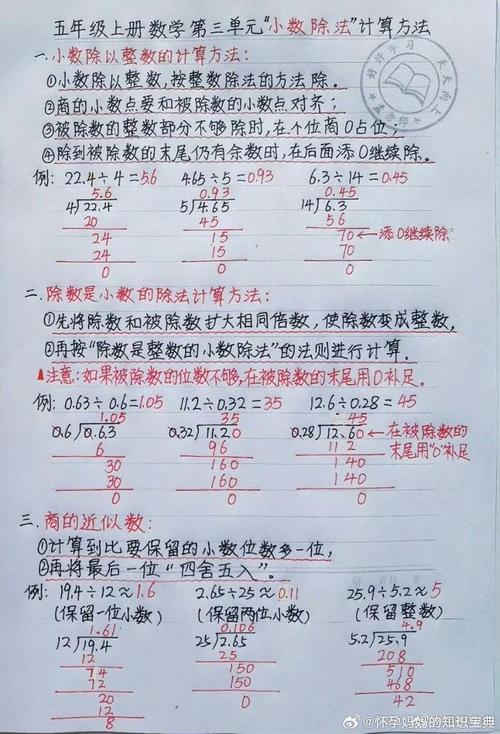 五年级上册数学第三单元"小数除法"计算方法
好好学习 天天向上
一.小数除以整数的计算方法:
①小数除以整数,按整数除法的方法除。
②商的小数点要和被除数的小数点对齐;
③被除数的整数部分不够除时,在个位商0占位;
④除到被除数的末尾仍有余数时,在后面添0继续除。
例: 22.4÷4=5.6 4.65÷5=0.93 6.3÷14=0.45
5.6 0.93 0.45
4 22.4 5 4.65 14 6.3
20 45 56
24 15 70 ←添0继续除
24 15 70
0 0 0
二.除数是小数的除法计算方法:
①先将除数和被除数扩大相同倍数,使除数变成整数,
②再按"除数是整数的小数除法"的法则进行计算。
▲注意:如果被除数的位数不够,在被除数的末尾用0补足。
例: 0.63÷0.6=1.05 11.2÷0.32=35 12.6÷0.28=45
1.05 35 45
0.6 0.6.3 0.32 11.20 0.28 12.60 ←在被除数的
6 96 112 末尾用"0"补足
30 160 140
30 160 140
0 0 0
三.商的近似数:
①计算到比要保留的小数位数多一位,
②再将最后一位"四舍五入"。
例: 19.4÷12≈1.6 2.65÷25≈0.11 25.9÷5.2≈5
(保留一位小数) (保留两位小数) (保留整数)
1.61 0.106 4.9
12 19.4 25 2.65 5.2 25.9
12 25 208
74 150 510
72 150 468
20 0 42
12
8
@怀孕妈妈的知识宝典